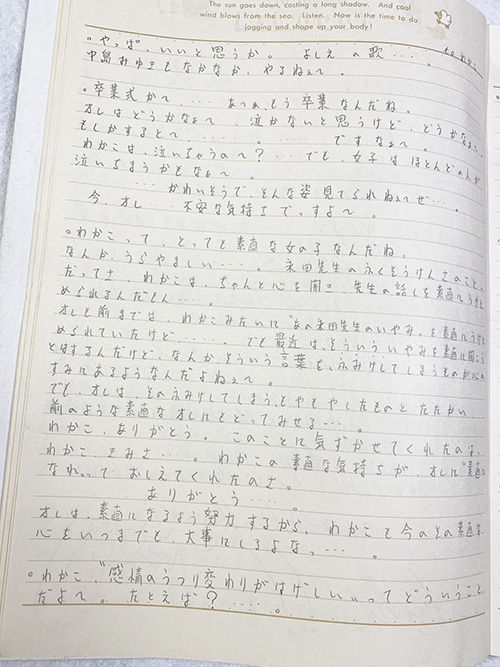 The sun goes down, casting a long shadow. And cool
wind blows from the sea. Listen. Now is the time to do
jogging and shape up your body!
◦やっぱ、いいと思うか。 よしえ の歌……。
中島みゆきもなかなか、やるねぇ〜。
◦卒業式かぁ〜、…… あ〜ぁ、もう卒業なんだね。
オレはどうかなぁ〜 泣かないと思うけど、どうかなぁ〜、
もしかすると〜……… 。……… ですなぁ〜。
わかこは、泣いちゃうの〜？……でも、女子はほとんどの人が
泣いちまうかもなぁ〜。
……かわいそうで、そんな姿見てられねぇ〜ぜ…。
今、オレ……不安な気持ちで、すよ〜。
◦わかこって、とっても素直な女の子なんだね。
なんか、うらやましい……。 永田先生の
だってさ、わかこは、ちゃんと心を開き、先生の話しを素直にうけと
められるんだもん…。
オレも前までは、わかこみたいに“あの永田先生のいやみ„を素直にうけと
められていたけど……。でも最近は、そういういやみを素直に聞こう
とはするんだけど、なんか、そういう言葉を、ふみけしてしまうものが心の
すみにあるようなんだよねぇ〜。
でも、オレは、そのふみけしてしまう、もやもやしたものとたたかい
前のような素直なオレにもどってみせる…。
わかこ、ありがとう。このことに気ずかせてくれたのは、
わかこ、きみさ……。わかこの素直な気持ちが、オレに“素直に
なれ„って おしえてくれたのさ。
ありがとう……。
オレは、素直になるよう努力するから、わかこも今のその素直な
心をいつまでも、大事にしろよなっ……。
◦わかこ、“感情のうつり変わりがはげしい„ってどういうこと
だよ〜。たとえば？……。